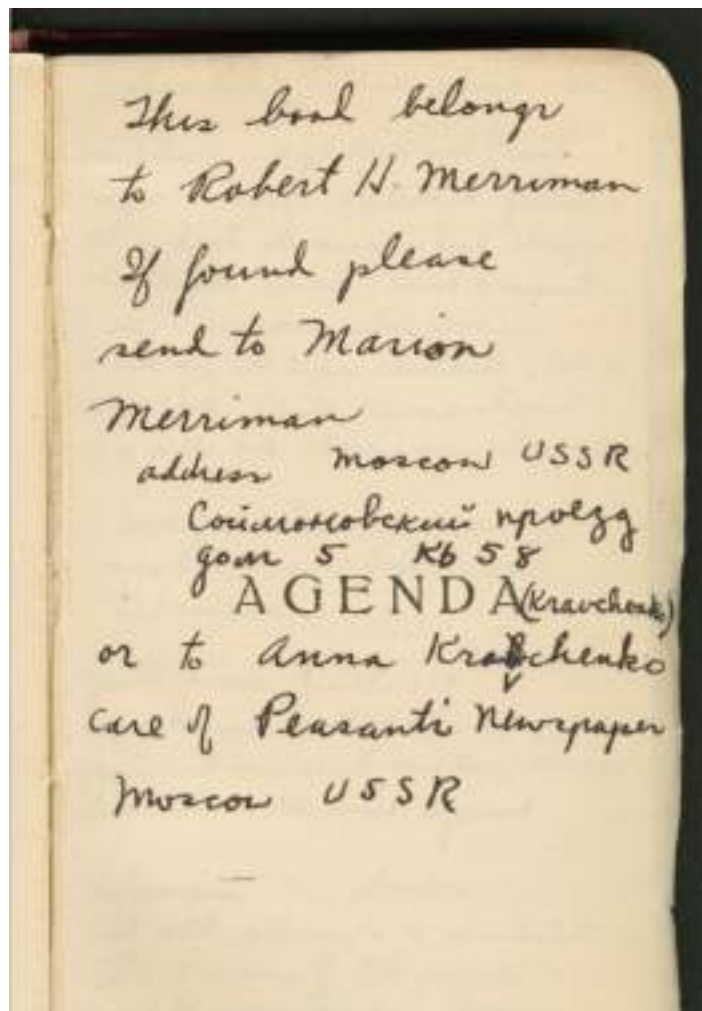 This book belongs
to Robert H. Merriman
If found please
send to Marion
Merriman
address Moscow USSR
Соймоновский проезд
дом 5 кв 58
AGENDA (Kravchenko)
or to Anna Kravchenko
v
care of Peasants Newspaper
Moscow USSR